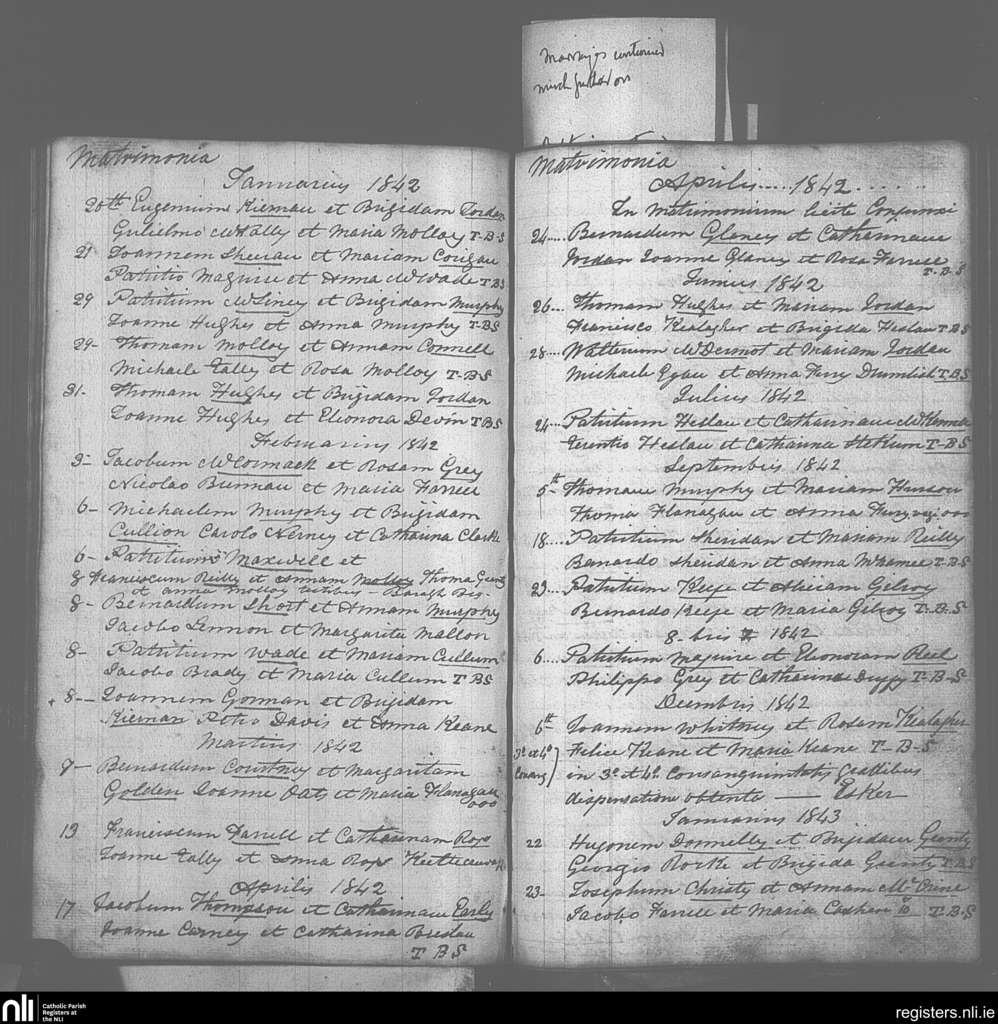 Marriages continued
much further on
Matrimonia
Januarius 1842
20th Eugenium Kiernan et Brigidam Jordan
Gulielmo McNally et Maria Molloy T-B-S
21 Joannem Sheran et Mariam Corigan
Patritio Maguire et Anna McWade TBS
29 Patritium McGiney et Brigidam Murphy
Joanne Hughes et Anna Murphy T-BS
29- Thomam Molloy et Annam Connell
Michaele Tally et Rosa Molloy T-B-S
31- Thomam Hughes et Brigidam Jordan
Joanne Hughes et Elenora Devin TBS
Februarius 1842
3- Jacobum McCormack et Rosam Grey
Nicolao Birnnan et Maria Farrell
6- Michaelem Murphy et Brigidam
Cullion Carolo Nerney et Catharina Clarke
6- Patritium Maxwell et
8 Franciscum Reilly et Annam Molloy Thoma
et Anna Molloy testibus -
8- Bernardum Short et Annam Murphy
Jacobo Lennon et Margarita Mallon
8- Patritium Wade et Mariam Cullum
Jacobo Brady et Maria Cullum T BS
8-- Joannem Gorman et Brigidam
Kiernan Petro Davis et Anna Keane
Martius 1842
7- Bernardum Courtney et Margaritam
Golden Joanne Oats et Maria Flanagan
000
13 Franciscum Farrell et Catharinam Rops
Joanne Tally et Anna Rops
Aprilis 1842
17 Jacobum Thompson et Catharinam Early
Joanne Carney et Catharina Breslau
T B S
Matrimonia
Aprilis.....1842......
In Matrimonium licite Conjunxi
24.... Bernardum Glaney et Catharinam
Jordan Joanne Glaney et Rosa Farrell
T-B-S
Junius 1842
26... Thomam Hughes et Mariam Jordan
Francisco Kealagher et Brigida Heslau TBS
28... Walterium McDermot et Mariam Jordan
Michaele Egau et Anna Fury Drumlish T.B.S
Julius 1842
24... Patritium Heslau et Catharinam McKenna
Terentio Heslau et Catharina T-B-S
Septembris 1842
5th- Thomam Murphy et Mariam
Thoma Flanagau et Anna Fury 000
18.... Patritium Sheridan et Mariam Reilly
Bernardo Sheridan et Maria T.B.S
23... Patritium Keefe et Mariam Gilroy
Bernardo Keefe et Maria Gilroy T-B-S
8-bris 1842
6.... Patritium Maguire et Elenoram Reel
Philippo Grey et Catharina Duffy T-B-S
Decembris 1842
6th Joannem Whitney et Rosam Kealagher
3o et 4o Felice Keane et Maria Keane T-B-S
Consang in 3o et 4o Consanguinitatis gradibus
dispensatione obtenta — Esker
Januarius 1843
22 Hugonem Donnelly et Brigidam Geraty
Georgio Rorke et Brigida Geraty TBS
23- Josephum Christy et Annam McCrine
Jacobo Farrell et Maria T.B-S
nli
Catholic Parish
Registers at
the NLI
registers.nli.ie